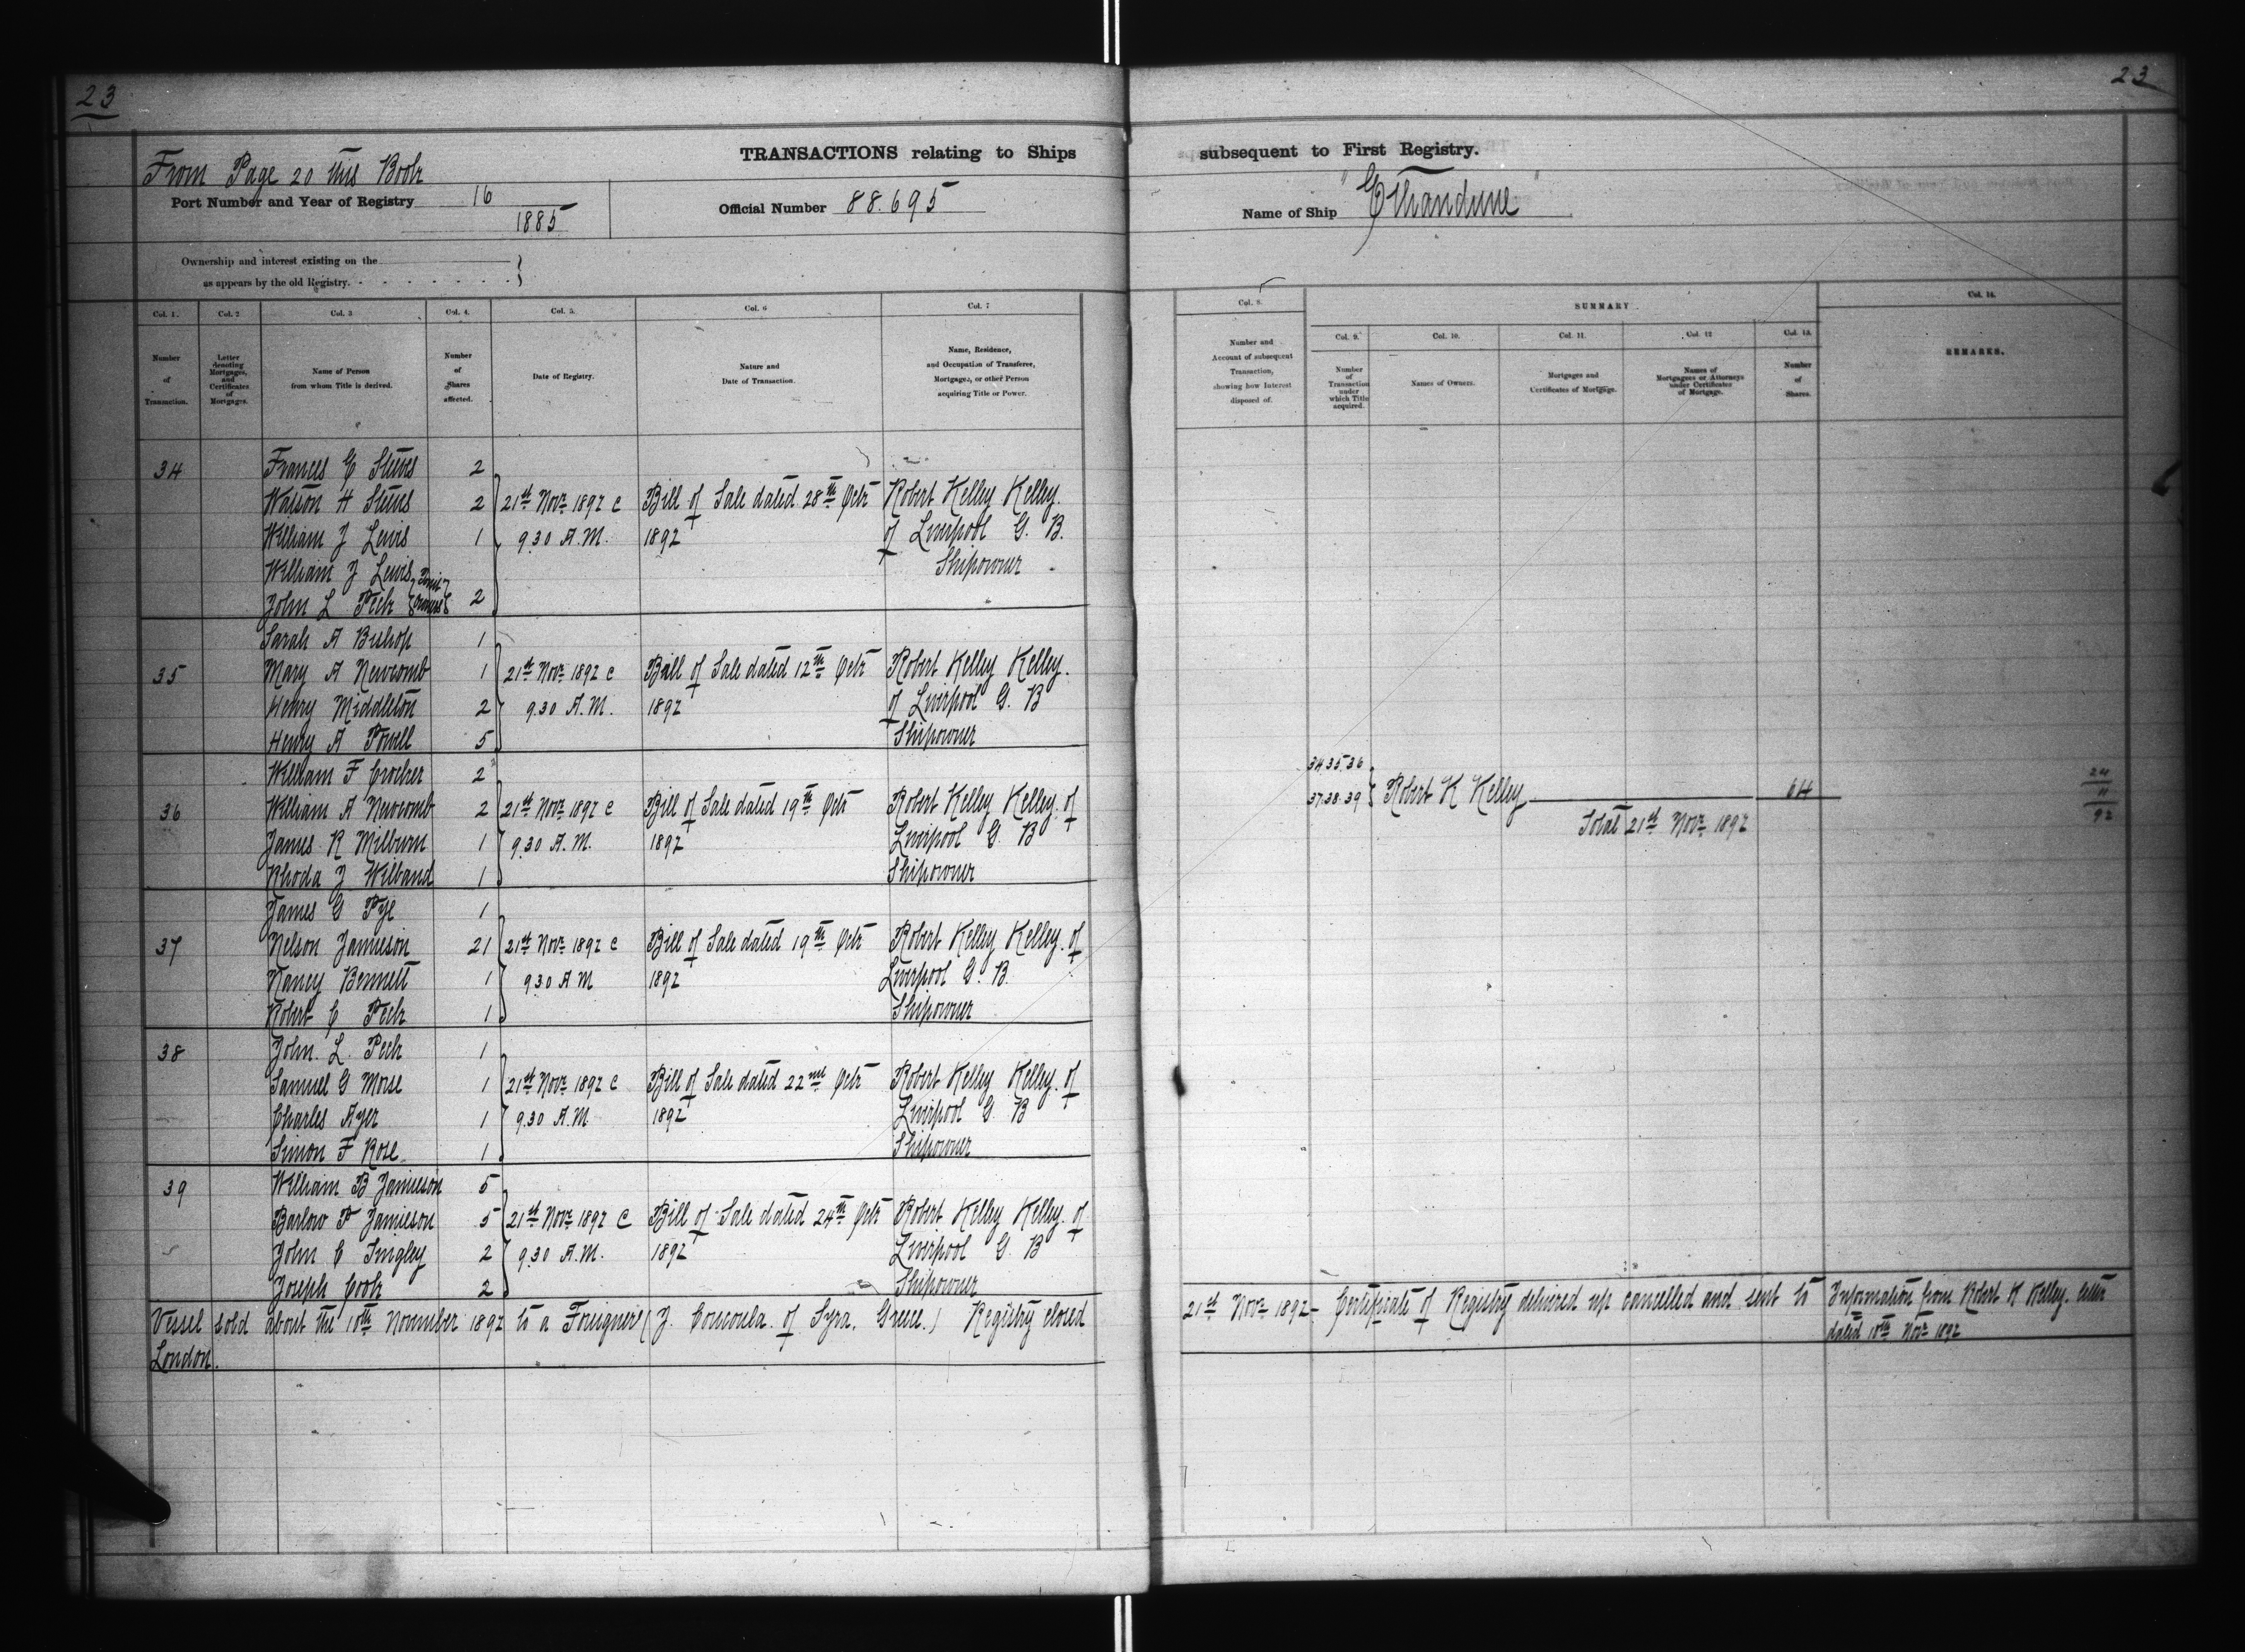 23
23
TRANSACTIONS relating to Ships subsequent to First Registry.
From Page 20 this Book
Port Number and Year of Registry 16
1885
Official Number 88.695
Name of Ship "Ethandune"
Ownership and interest existing on the
as appears by the old Registry.
Col. 1.
Col. 2
Col. 3
Col. 4.
Col. 5.
Col. 6
Col. 7
Number of Transaction.
Letter denoting Mortgages, and Certificates of Mortgages.
Name of Person from whom Title is derived.
Number of Shares affected.
Date of Registry.
Nature and Date of Transaction.
Name, Residence, and Occupation of Transferee, Mortgagee, or other Person acquiring Title or Power.
Col. 8.
SUMMARY.
Col. 14.
Col. 9.
Col. 10.
Col. 11.
Col. 12
Col. 13.
Number and Account of subsequent Transaction, showing how Interest disposed of.
Number of Transaction under which Title acquired.
Names of Owners.
Mortgages and Certificates of Mortgage.
Names of Mortgagees or Attorneys under Certificates of Mortgage.
Number of Shares.
REMARKS.
34 Frances E Steeves 2
Watson H Steeves 2 21st Novr 1892 @ Bill of Sale dated 28th Octr Robert Kelley Kelley.
William J Lewis 1 9.30 A.M. 1892 of Liverpool G. B.
William J Lewis Joint Shipowner
John L Peck Owners 2
Sarah A Bishop 1
35 Mary A Newcomb 1 21st Novr 1892 @ Bill of Sale dated 12th Octr Robert Kelley Kelley.
Henry Middleton 2 9.30 A.M. 1892 of Liverpool G. B
Henry A Powell 5 Shipowner
William F Crocker 2
36 William A Newcomb 2 21st Novr 1892 @ Bill of Sale dated 19th Octr Robert Kelley Kelley. of
James R Milburn 1 9.30 A.M. 1892 Liverpool G. B
Rhoda J Wilband 1 Shipowner
James G Pye 1
37 Nelson Jamieson 21 21st Novr 1892 @ Bill of Sale dated 19th Octr Robert Kelley Kelley. of
Nancy Bennett 1 9.30 A M 1892 Liverpool G. B.
Robert C Peck 1 Shipowner
38 John. L. Peck 1
Samuel G Morse 1 21st Novr 1892 @ Bill of Sale dated 22nd Octr Robert Kelley Kelley. of
Charles Ayer 1 9.30 A.M. 1892 Liverpool G. B
Simon F Rose 1 Shipowner
39 William B Jamieson 5
Barlow F Jamieson 5 21st Novr 1892 @ Bill of Sale dated 24th Octr Robert Kelley Kelley. of
John C Tingley 2 9.30 A.M. 1892 Liverpool G. B
Joseph Cook 2 Shipowner
34 35 36
37.38.39 Robert K Kelley 64
Total 21st Novr 1892
24
11
92
Vessel sold about the 10th November 1892 to a Foreigner (J. of Syra. Greece.) Registry closed 21st Novr 1892 - Certificate of Registry delivered up cancelled and sent to
London.
Information from Robert K Kelley. letter
dated 10th Novr 1892